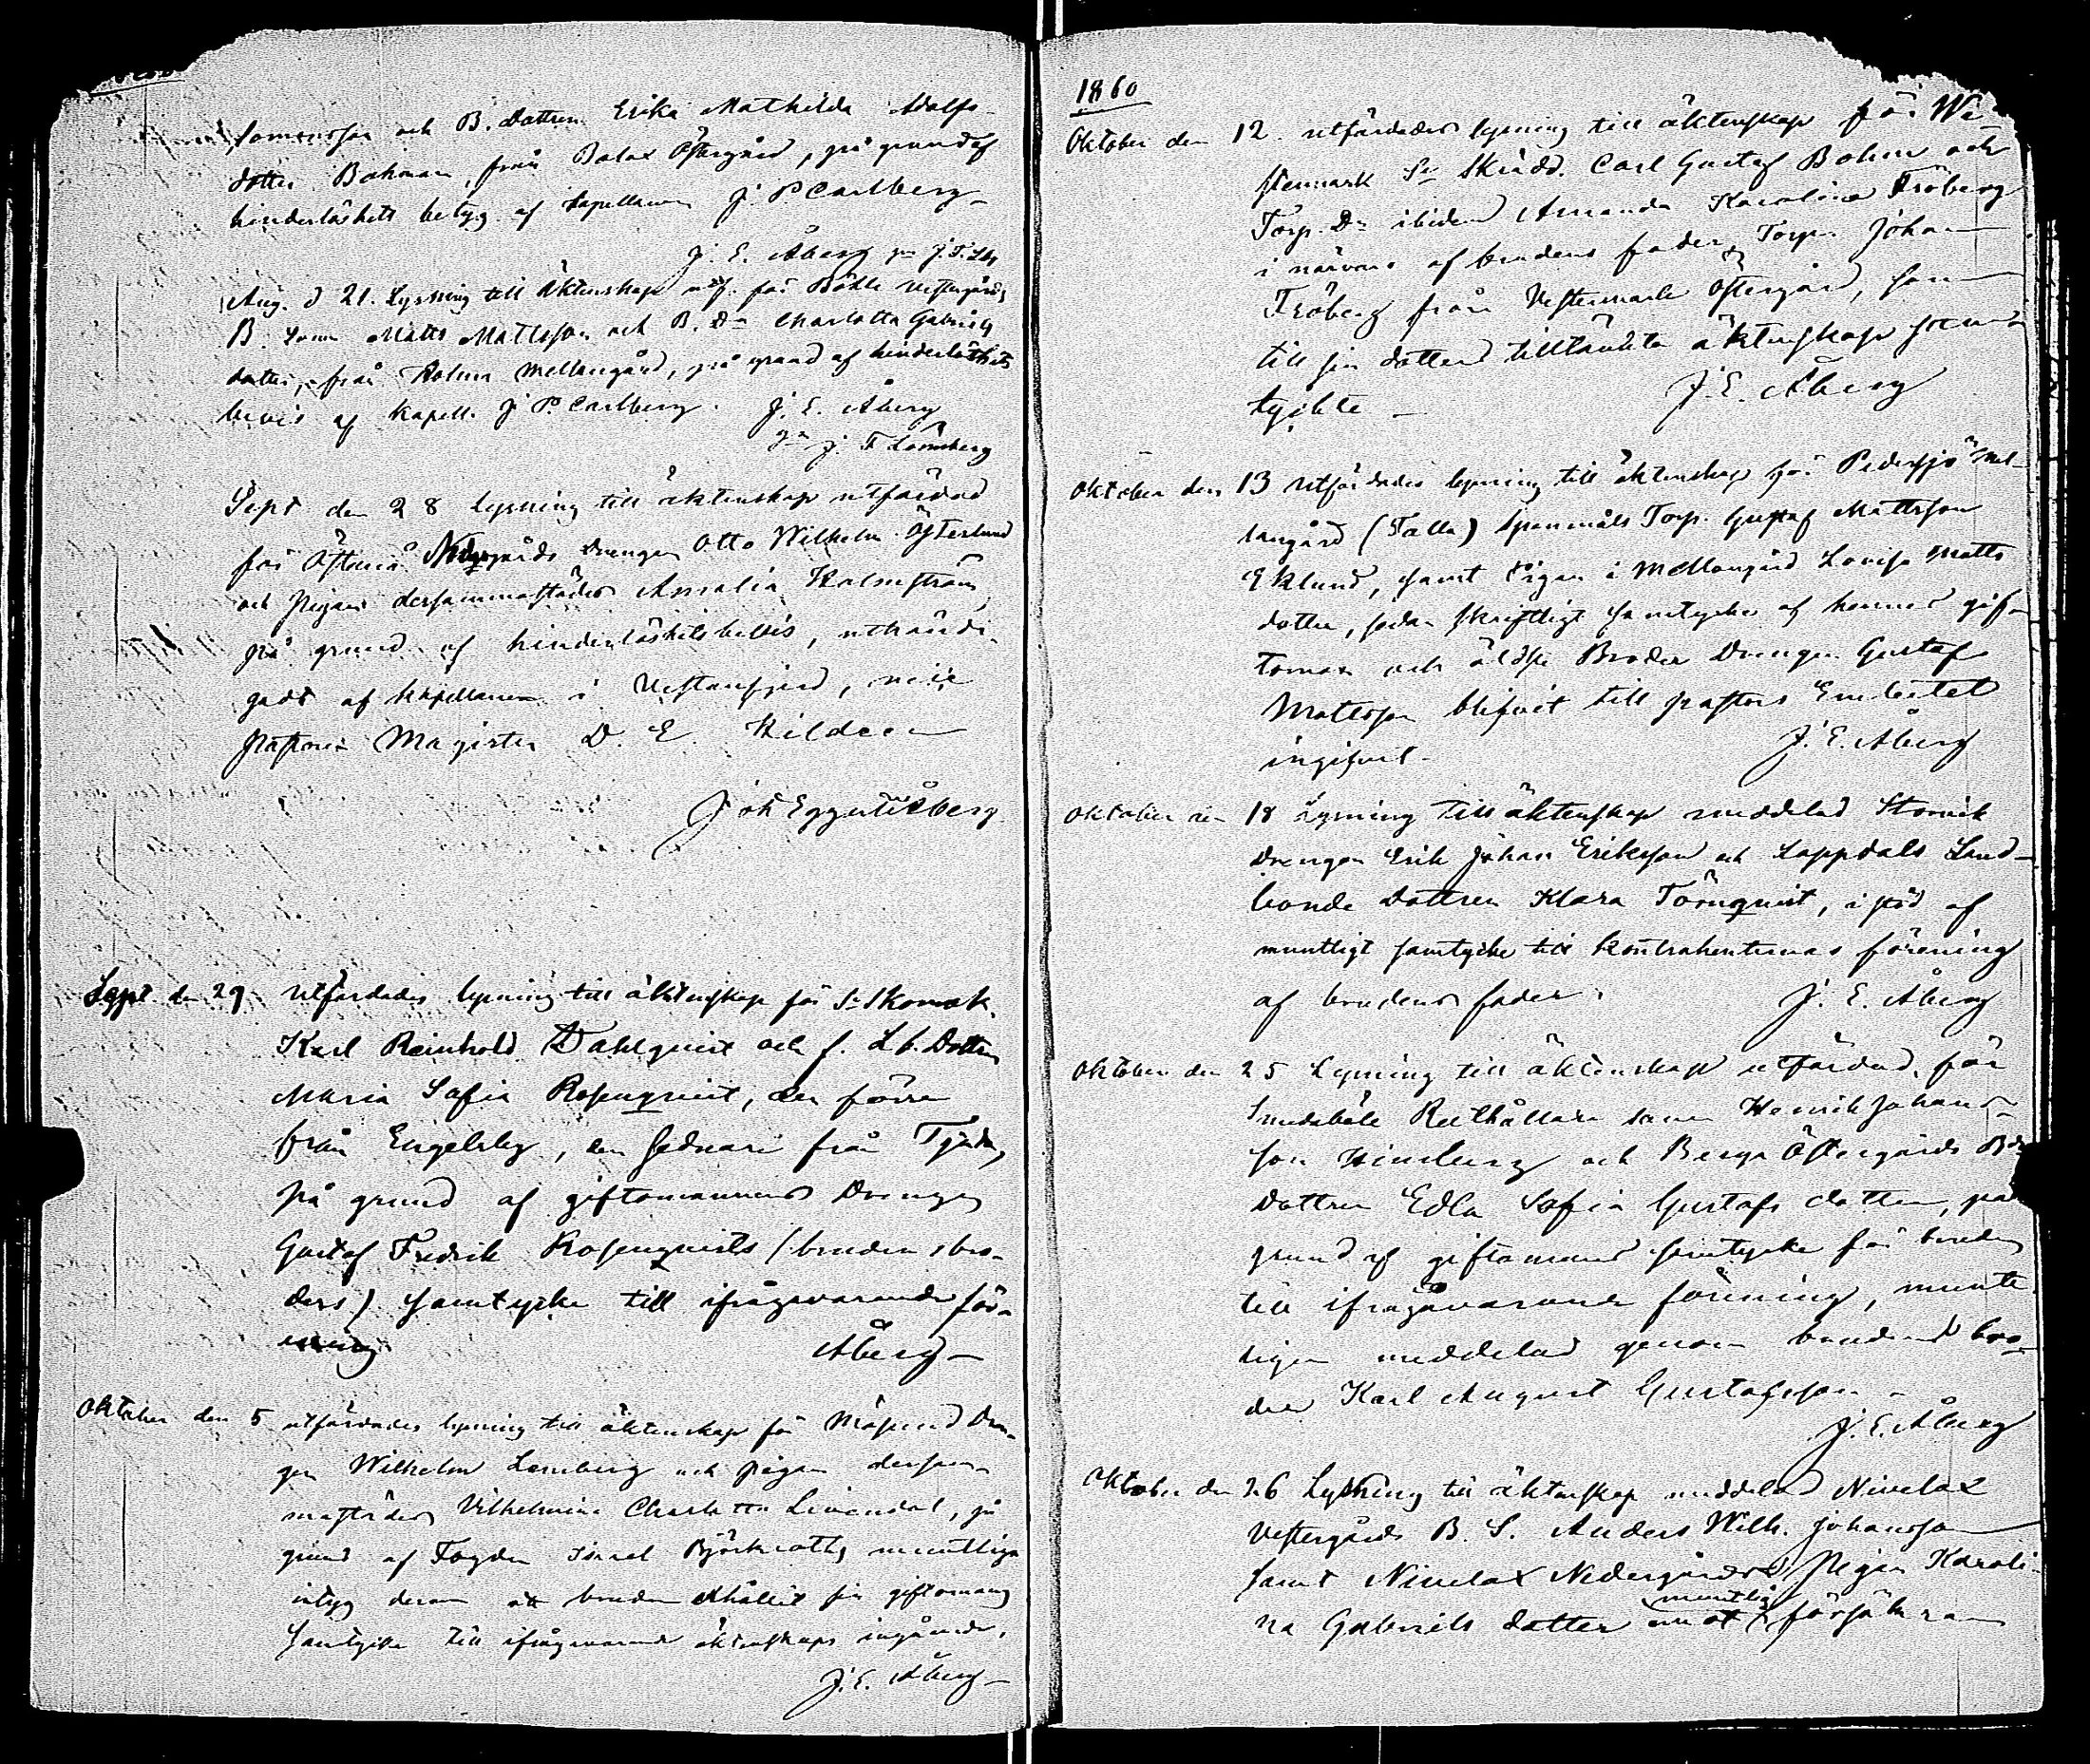 Salomonsson och B. Dottren Erika Mathilda Adolfs-
dotter Bohman, från Balax Östergård, på grund af
hinderlöshets betyg af Kapellanen J. P. Carlberg
J. E. Åberg
Aug. d 21. Lysning till Äktenskap utf. för Böhle Vestergårds
B. Sonen Matts Mattsson och B. Dn Charlotta Gabriels
dotter, från Holma Mellangård, på grund af hinderlöshets
bevis af Kapell. J. P. Carlberg. J. E. Åberg
gm J. F. Lönnberg
Sept den 28 Lysning till äktenskap utfärdad
för Nedergårds Drengen Otto Wilhelm Österlund
och Pigan dersammastädes Amalia Holmström
på grund af hinderlöshetsbevis, uthändi-
gadt af Kapellanen i Vestanfjerd, vice
Pastorn Magister D. E. Kildeen
Joh Eggert Åberg
Sept. den 29 Utfärdades lysning till äktenskap för Sn Skomak.
Karl Reinhold Dahlqvist och f. Lb. Dottren
Maria Sofia Rosenqvist, den förre
från Engelsby, den sednare från Tjuda,
på grund af giftomannens Drengen
Gustaf Fredrik Rosenqvists (brudens bro-
ders) samtycke till ifrågavarande för-
ening
Åberg
Oktober den 5 utfärdades lysning till äktenskap för Dren-
gen Wilhelm Lemberg och pigan dersam-
mastädes Vilhelmina Charlotta Limendal, på
grund af Fogden Israel Björkroths muntliga
intyg derom att bruden erhållit sin giftomans
samtycke till ifrågavarande äktenskaps ingående.
J. E. Åberg
1860
Oktober den 12. utfärdades lysning till äktenskap för We
stermark Sn Skrädd. Carl Gustaf Bohm och
Torp. Dn ibidem Amanda Karolina Fröberg
i närvaro af brudens fader, Torp. Johan
Fröberg från Vestermark Östergård, som
till sin dotters tilltänkta äktenskap sam-
tyckte
J. E. Åberg
Oktober den 13 utfärdades lysning till äktenskap för Pedersjö Mel-
langård (Talla) Spanmåls Torp. Gustaf Mattsson
Eklund, samt Pigan i Mellangård Lovisa Matts
dotter, sedan skriftligt samtycke af hennes gif-
toman och äldste Broder Drengen Gustaf
Mattsson blifvit till Pastors Embetet
ingifvet
J. E. Åberg
Oktober den 18 Lysning till äktenskap meddelad Storvik
Drengen Erik Johan Eriksson och Lappdals Land-
bonde Dottren Klara Törnqvist, i stöd af
muntligt samtycke till kontrahenternas förening
af brudens fader.
J. E. Åberg
Oktober den 25 Lysning till äktenskap utfärdad för
Smedaböle Rusthållare sonen Henrik Johans-
son Himberg och Berga Östergårds Bde
Dottren Edla Sofia Gustafs dotter, på
grund af giftomans samtycke för bruden
till ifrågavarande förening, munte
ligen meddelad genom brudens bro-
der Karl August Gustafsson
J. E. Åberg
Oktober den 26 Lysning till äktenskap meddelad Nivelax
Vestergårds B. S. Anders Wilh. Johansson
samt Nivelax Nedergårds Pigan Karoli-
na Gabriels dotter emot muntlig försäkran